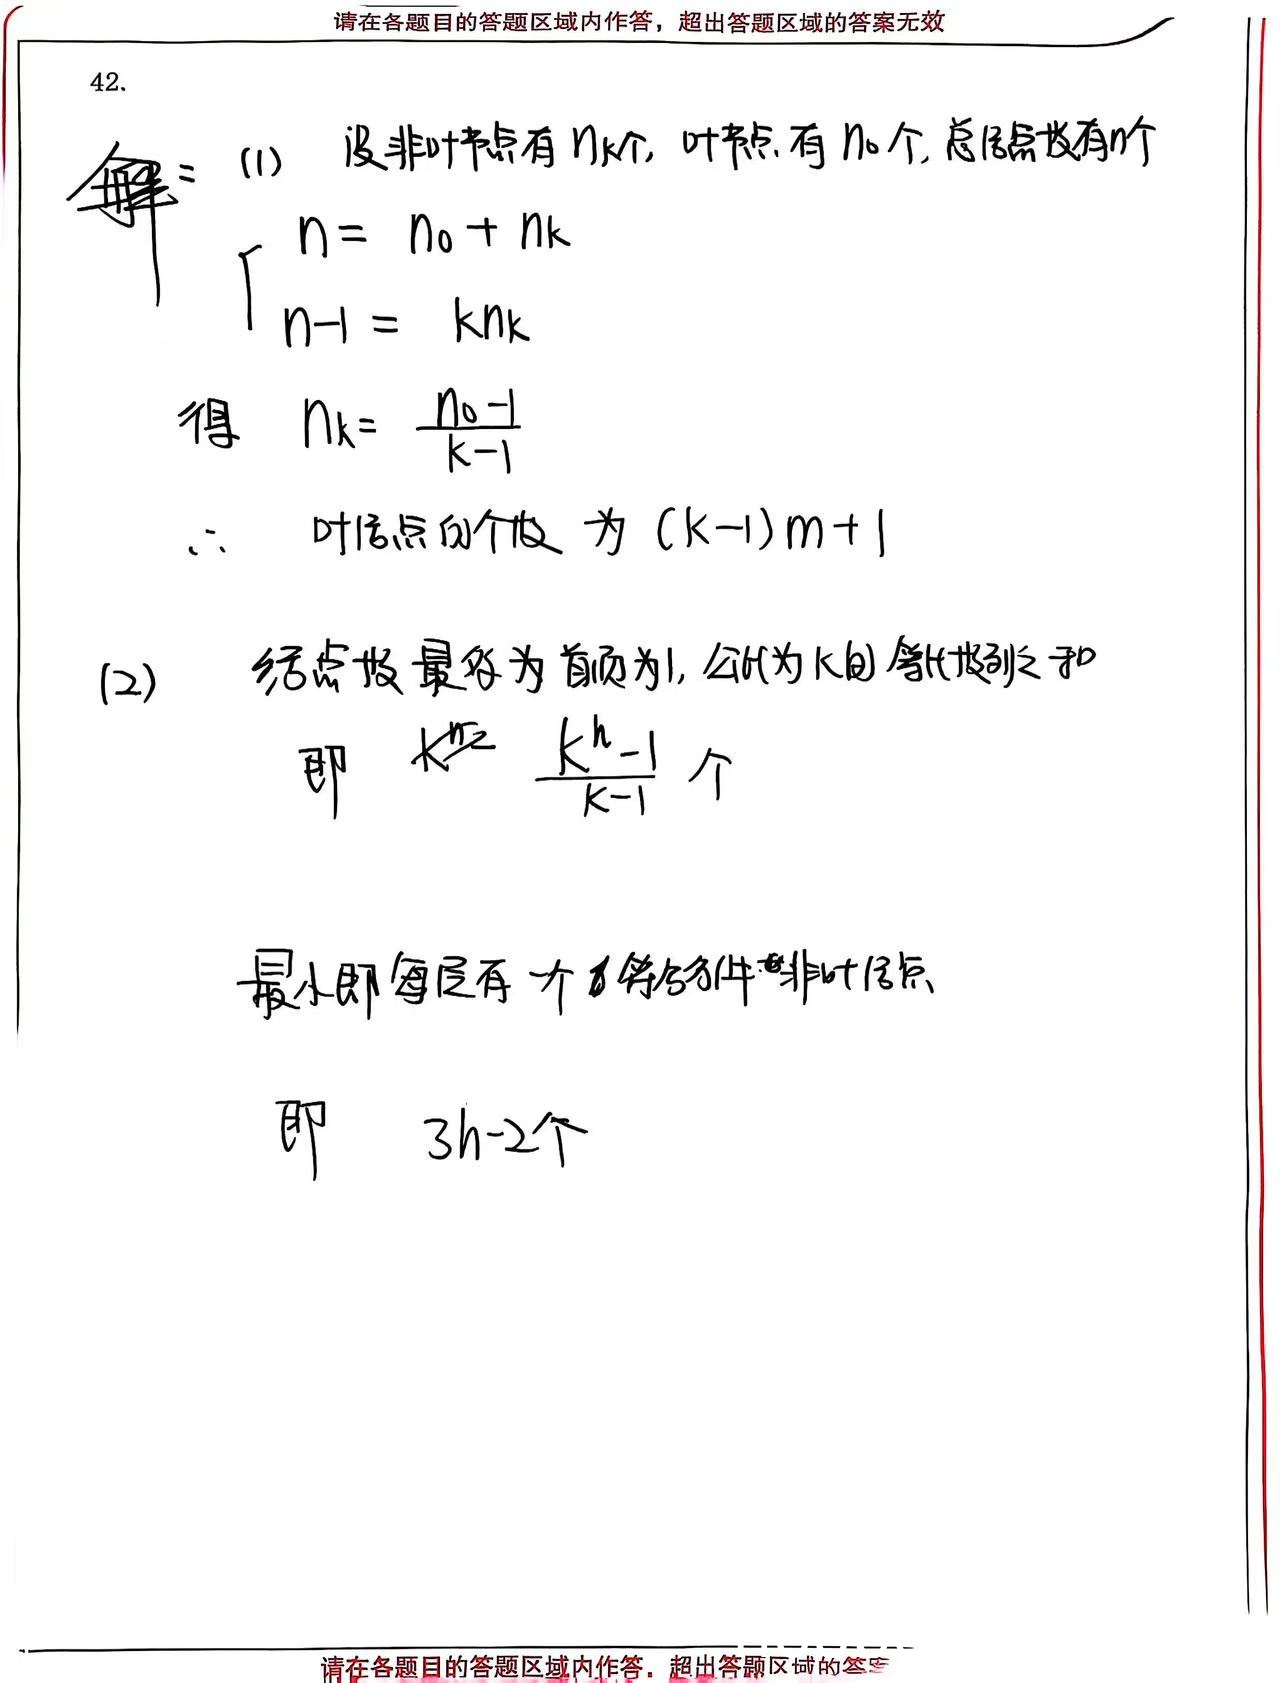 请在各题目的答题区域内作答，超出答题区域的答案无效
42.
解: (1) 设非叶节点有 nk个, 叶节点有 n₀ 个, 总结点数有n个
n = n₀ + nk
n-1 = knk
得 nk = (n₀-1)/(k-1)
∴ 叶结点的个数 为 (k-1)m+1
(2) 结点数最多为首项为1, 公比为k的等比数列之和
即 (k^h-1)/(k-1) 个
最小即每层有一个符合条件非叶结点
即 3h-2个
请在各题目的答题区域内作答，超出答题区域的答案